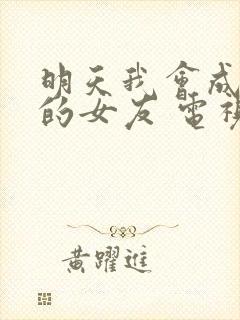 明天我會成
的女友 電視
黃躍進